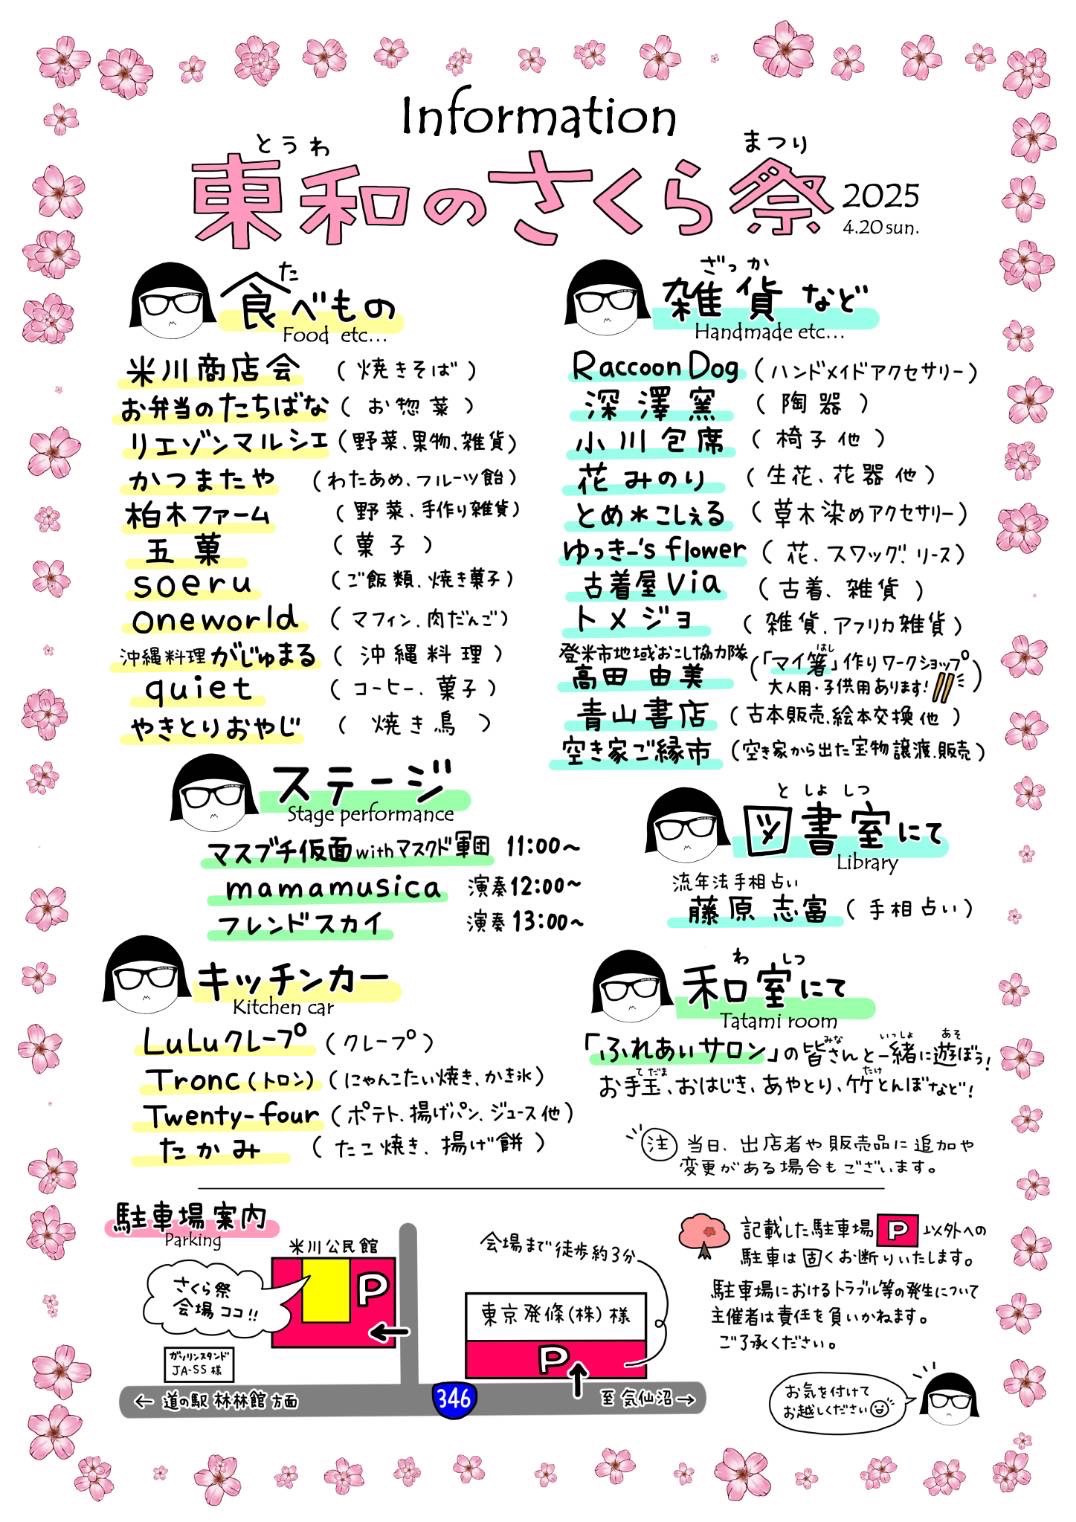 Information
とうわ
まつり
東和のさくら祭 2025
4.20 sun.
た
食べもの
Food etc...
米川商店会 (焼きそば)
お弁当のたちばな (お惣菜)
リエゾンマルシェ (野菜、果物、雑貨)
かつまたや (わたあめ、フルーツ飴)
柏木ファーム (野菜、手作り雑貨)
五菓 (菓子)
soeru (ご飯類、焼き菓子)
oneworld (マフィン、肉だんご)
沖縄料理 がじゅまる (沖縄料理)
quiet (コーヒー、菓子)
やきとりおやじ (焼き鳥)
ざっか
雑貨など
Handmade etc...
Raccoon Dog (ハンドメイドアクセサリー)
深澤窯 (陶器)
小川包席 (椅子他)
花みのり (生花、花器他)
とめ*こしぇる (草木染めアクセサリー)
ゆっきー's flower (花、スワッグ、リース)
古着屋Via (古着、雑貨)
トメジョ (雑貨、アフリカ雑貨)
登米市地域おこし協力隊
高田由美
はし
(「マイ箸」作りワークショップ
大人用・子供用あります!)
青山書店 (古本販売、絵本交換他)
空き家ご縁市 (空き家から出た宝物譲渡、販売)
ステージ
Stage performance
マスブチ仮面withマスクド軍団 11:00〜
mamamusica 演奏12:00〜
フレンドスカイ 演奏13:00〜
としょしつ
図書室にて
Library
流年法手相占い
藤原志富 (手相占い)
キッチンカー
Kitchen car
LuLuクレープ (クレープ)
Tronc(トロン) (にゃんこたい焼き、かき氷)
Twenty-four (ポテト、揚げパン、ジュース他)
たかみ (たこ焼き、揚げ餅)
わしつ
和室にて
Tatami room
みな いっしょ あそ
「ふれあいサロン」の皆さんと一緒に遊ぼう!
てだま たけ
お手玉、おはじき、あやとり、竹とんぼなど!
注 当日、出店者や販売品に追加や
変更がある場合もございます。
駐車場案内
Parking
米川公民館
さくら祭
会場ココ!!
P
ガソリンスタンド
JA-SS様
会場まで徒歩約3分
東京発條(株)様
P
← 道の駅 林林館 方面
346
至 気仙沼 →
記載した駐車場 P 以外への
駐車は固くお断りいたします。
駐車場におけるトラブル等の発生について
主催者は責任を負いかねます。
ご了承ください。
お気を付けて
お越しください